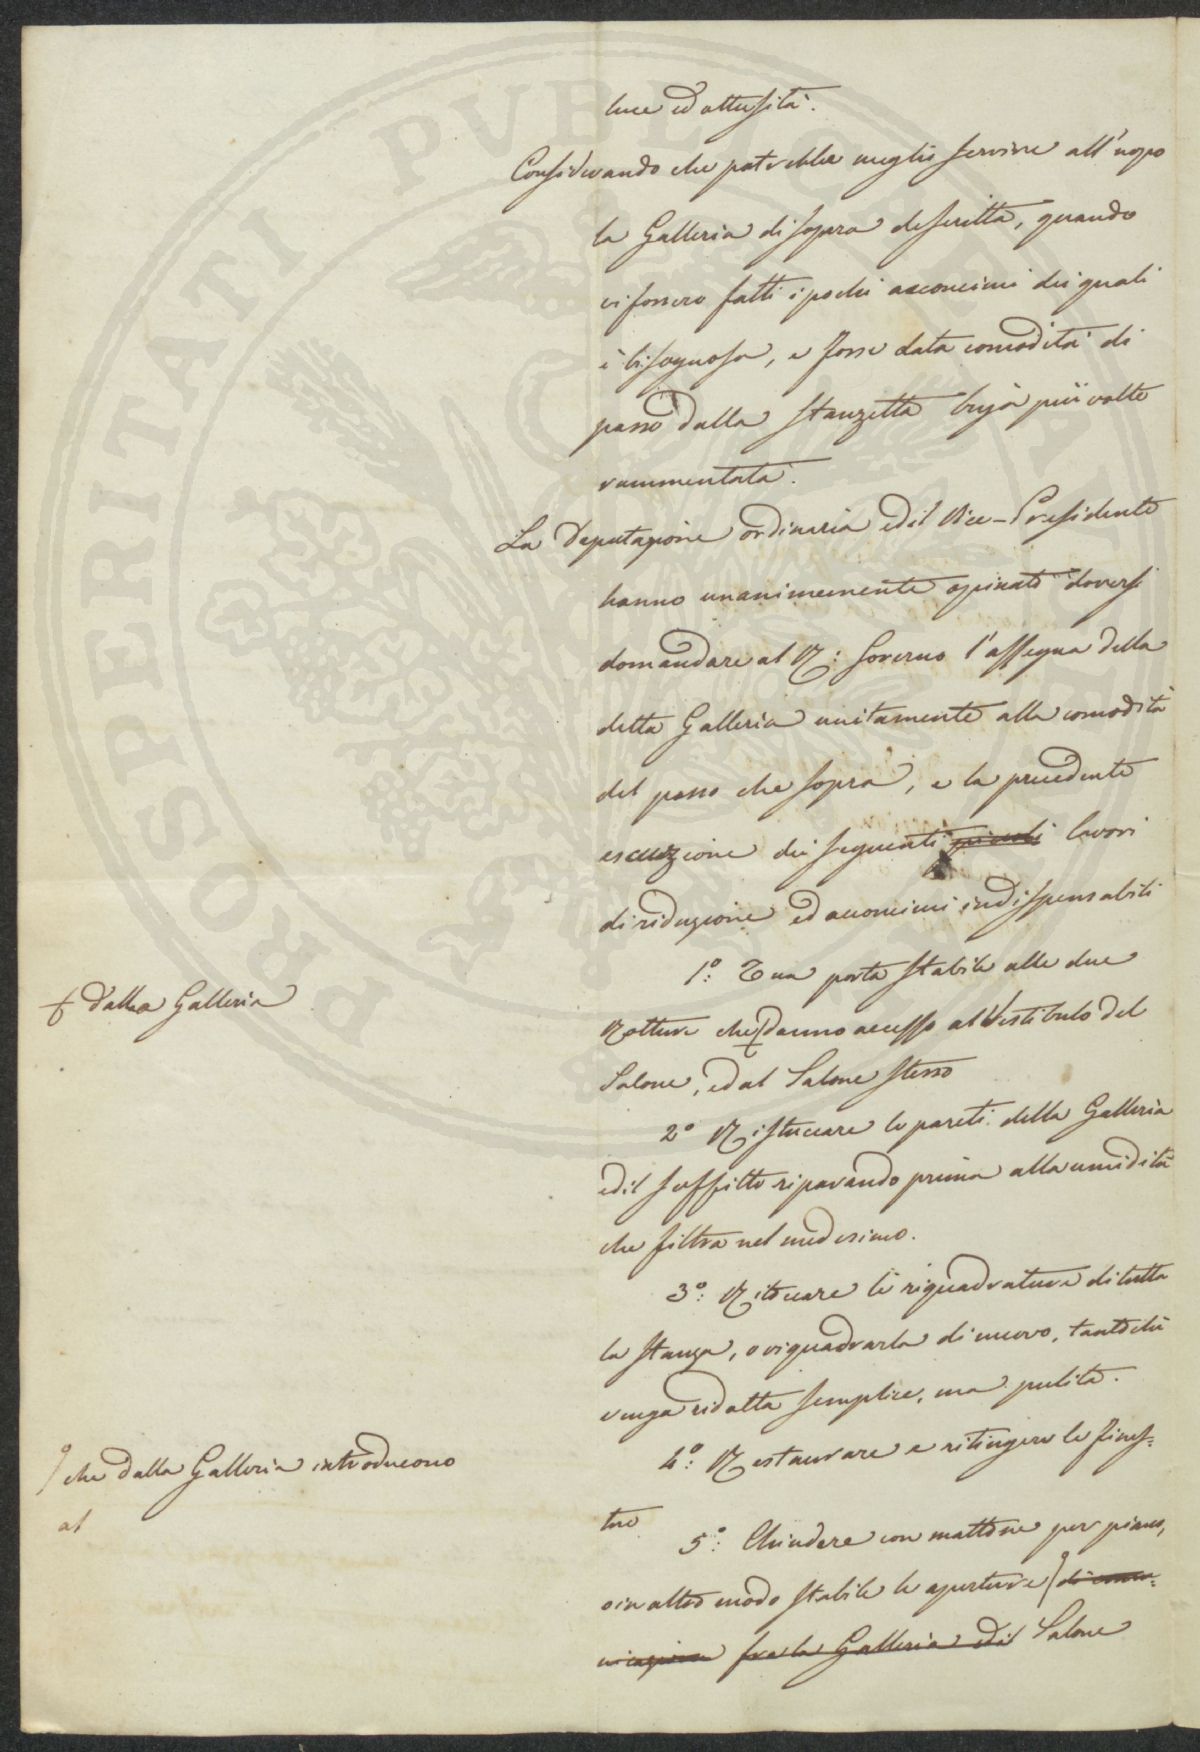 luce ed attusità.
Considerando che potrebbe meglio servire all'uopo
la Galleria di sopra descritta, quando
vi fossero fatti i pochi acconcimi dei quali
è bisognosa, e fosse data comodità di
passo dalla Stanzetta bujà più volte
rammentata.
La Deputazione ordinaria ed il Vice-Presidente
hanno unanimemente opinato doversi
domandare al R: Governo l'assegna della
detta Galleria unitamente alla comodità
del passo che sopra, e la precedente
esecuzione dei seguenti piccoli lavori
di riduzione ed acconcimi indispensabili
1º: Una porta stabile alle due
Rotture che danno accesso al Vestibulo del
Ɫ dalla Galleria
Salone, ed al Salone stesso
2º Ristuccare le pareti della Galleria
ed il soffitto riparando prima alla umidità
che filtra nel medesimo.
3º: Ritoccare le riquadrature di tutta
la Stanza, o riquadrarla di nuovo, tantochè
venga ridotta semplice, ma pulita.
4º: Restaurare e ritingere le fines=
tre
5º: Chiudere con mattone per piano,
o in altro modo stabile le aperture di comu=
che dalla Galleria introducono
al
nicazione fra la Galleria ed il Salone
PROSPERITATI PVBLICAE